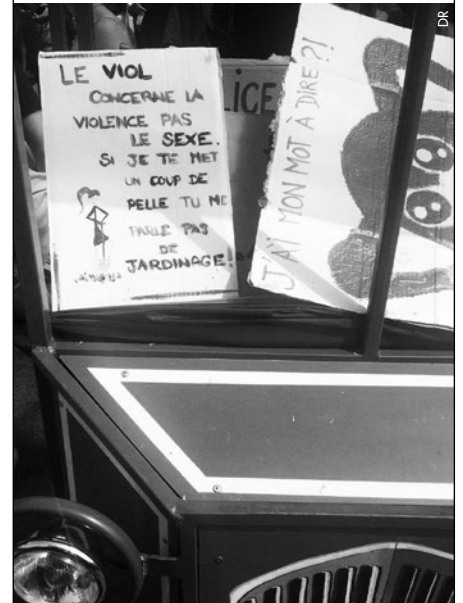 LE VIOL
CONCERNE LA
VIOLENCE PAS
LE SEXE.
SI JE TE MET
UN COUP DE
PELLE TU ME
PARLE PAS
DE
JARDINAGE!
LICE
J'AI MON MOT À DIRE?!
DR